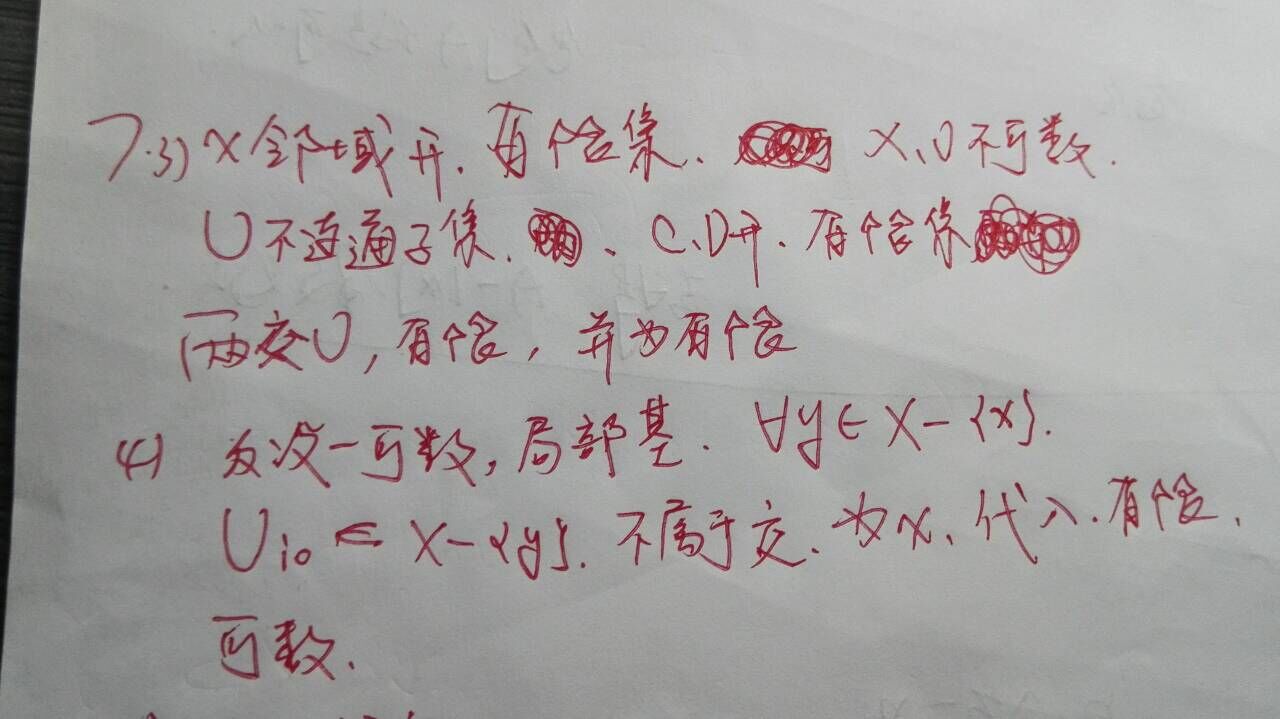 7.3) x邻域开.有限集. X、U不可数.
U不连通子集. 、C、D开.有限集
两交U,有限,并为有限
(4) 反设一可数,局部基. ∀y∈X-{x}.
Ui₀ ⊂ X-{y}.不属于交.为x、代入.有限.
可数.